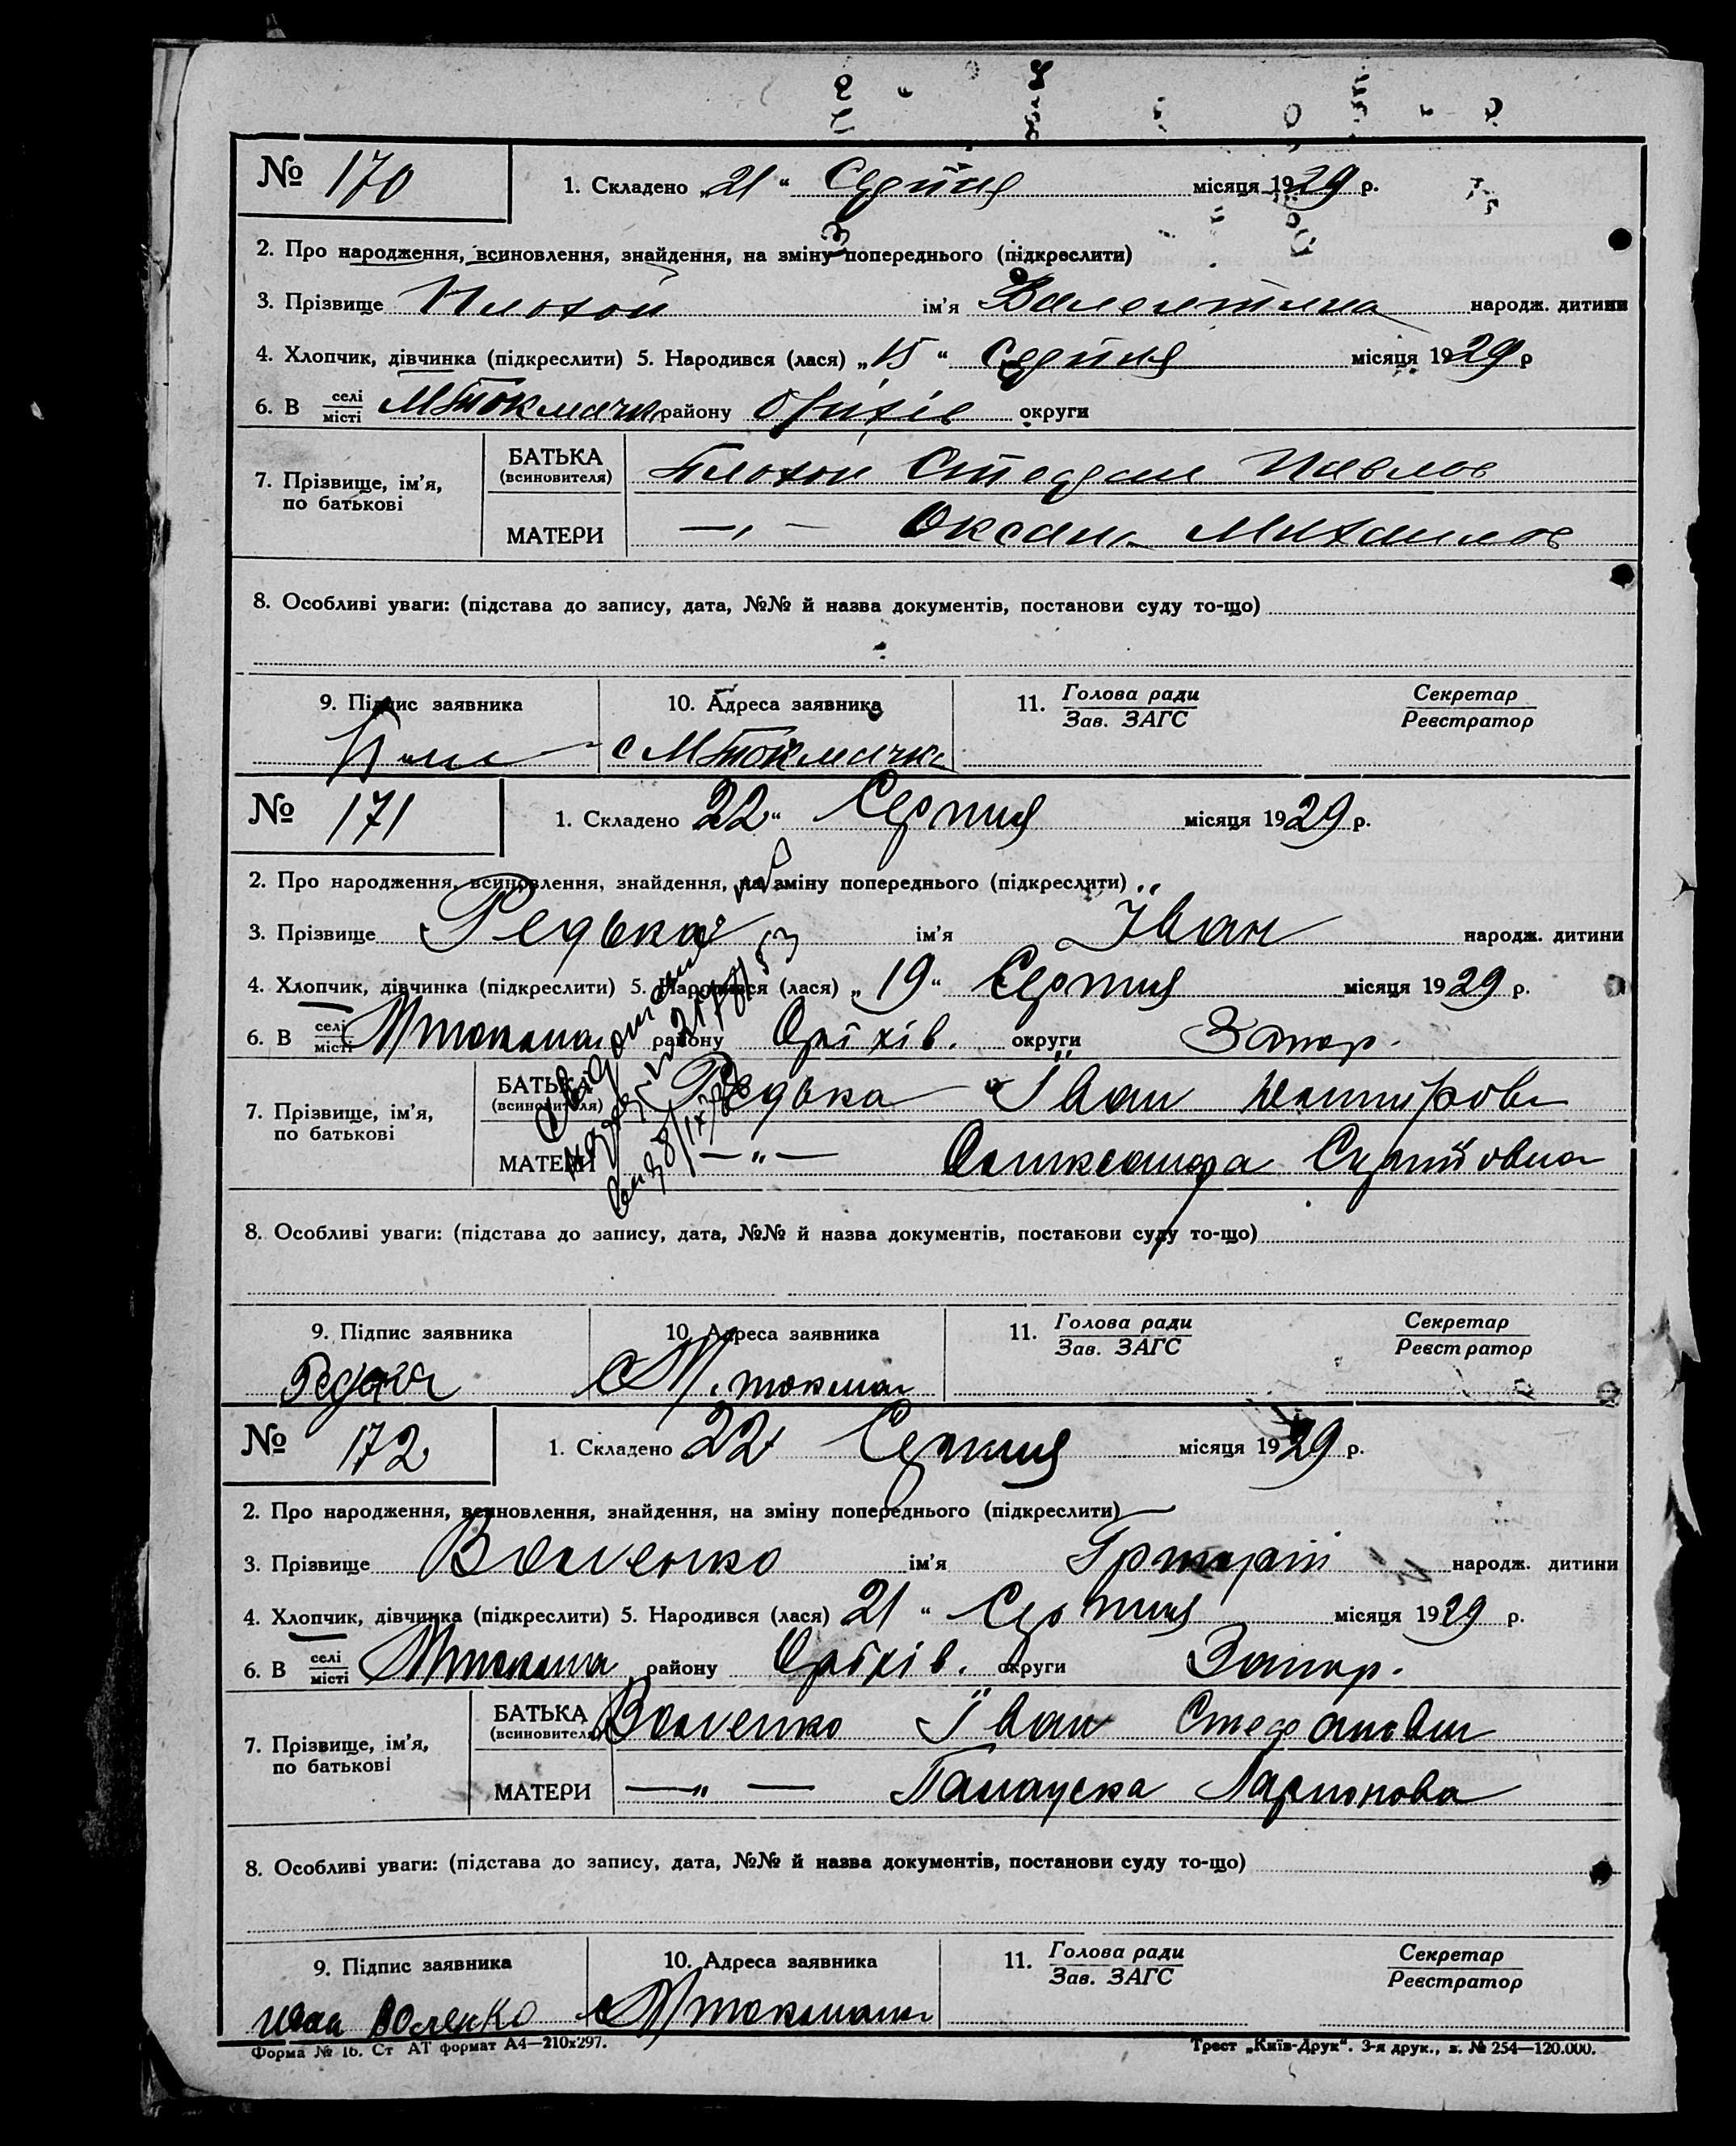 № 170 1. Складено „21“ Серпня місяця 1929 р.
2. Про народження, всиновлення, знайдення, на зміну попереднього (підкреслити)
3. Прізвище Плохой ім’я Валентина народж. дитини
4. Хлопчик, дівчинка (підкреслити) 5. Народився (лася) „15“ Серпня місяця 1929 р
6. В селі місті МТокмачка району Оріхів округи
7. Прізвище, ім’я, по батькові БАТЬКА (всиновителя) Плохой Степан Павлов
МАТЕРИ —„— Оксана Михайлов
8. Особливі уваги: (підстава до запису, дата, №№ й назва документів, постанови суду то-що)
9. Підпис заявника 10. Адреса заявника 11. Голова ради Зав. ЗАГС Секретар Реєстратор
с МТокмачка
№ 171 1. Складено 22“ Серпня місяця 1929 р.
2. Про народження, всиновлення, знайдення, на зміну попереднього (підкреслити)
3. Прізвище Редька ім’я Іван народж. дитини
4. Хлопчик, дівчинка (підкреслити) 5. Народився (лася) „19“ Серпня місяця 1929 р.
6. В селі місті Мтокмач району Оріхів. округи Запор.
7. Прізвище, ім’я, по батькові БАТЬКА (всиновителя) Редька Іван
МАТЕРИ —„— Олександра
8. Особливі уваги: (підстава до запису, дата, №№ й назва документів, постанови суду то-що)
9. Підпис заявника 10. Адреса заявника 11. Голова ради Зав. ЗАГС Секретар Реєстратор
Редька с М. токмач
№ 172 1. Складено 22 Серпня місяця 1929 р.
2. Про народження, всиновлення, знайдення, на зміну попереднього (підкреслити)
3. Прізвище Воленко ім’я Григорій народж. дитини
4. Хлопчик, дівчинка (підкреслити) 5. Народився (лася) 21“ Серпня місяця 1929 р.
6. В селі місті Мтокмач району Оріхів. округи Запор.
7. Прізвище, ім’я, по батькові БАТЬКА (всиновителя) Воленко Іван Стефанович
МАТЕРИ —„— Ларионова
8. Особливі уваги: (підстава до запису, дата, №№ й назва документів, постанови суду то-що)
9. Підпис заявника 10. Адреса заявника 11. Голова ради Зав. ЗАГС Секретар Реєстратор
Иван Воленко с Мтокмач
Форма № 16. Ст АТ формат А4—210х297. Трест „Київ-Друк“. 3-я друк., з. № 254—120.000.